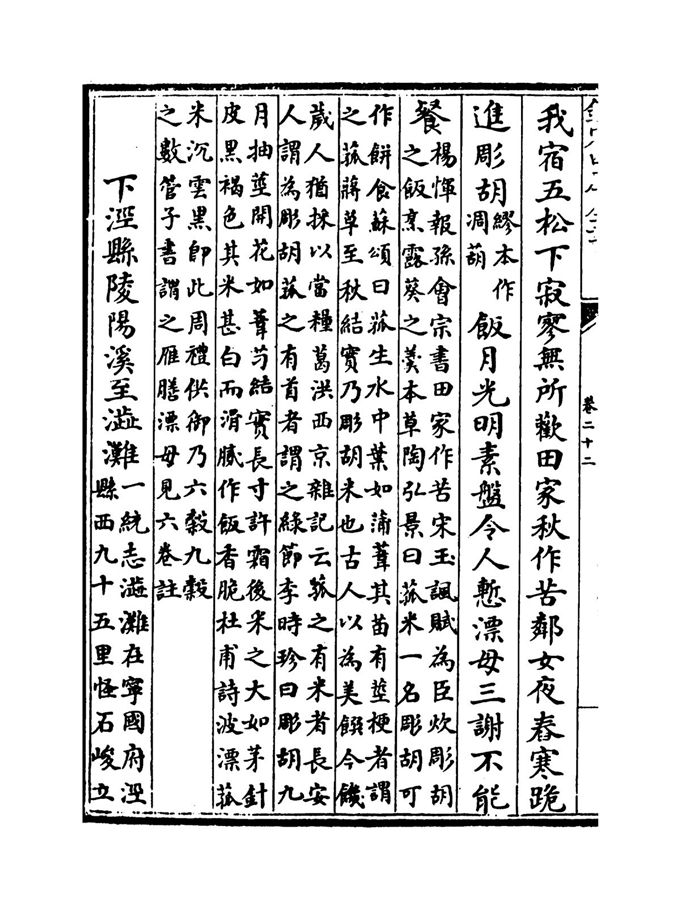 卷二十二
我宿五松下寂寥無所歡田家秋作苦鄰女夜舂寒跪
進彫胡繆本作凋葫飯月光明素盤令人慙漂母三謝不能
餐楊惲報孫會宗書田家作苦宋玉諷賦為臣炊彫胡
之飯烹露葵之羮本草陶弘景曰菰米一名彫胡可
作餅食蘇頌曰菰生水中葉如蒲葦其苗有莖梗者謂
之菰蔣草至秋結實乃彫胡米也古人以為美饌今饑
歲人猶採以當糧葛洪西京雜記云菰之有米者長安
人謂為彫胡菰之有首者謂之緑節李時珍曰彫胡九
月抽莖開花如葦芀結實長寸許霜後米之大如茅針
皮黑褐色其米甚白而滑膩作飯香脆杜甫詩波漂菰
米沉雲黒即此周禮供御乃六穀九穀
之數管子書謂之雁膳漂母見六卷註
下涇縣陵陽溪至澁灘一統志澁灘在寧國府涇
縣西九十五里怪石峻立